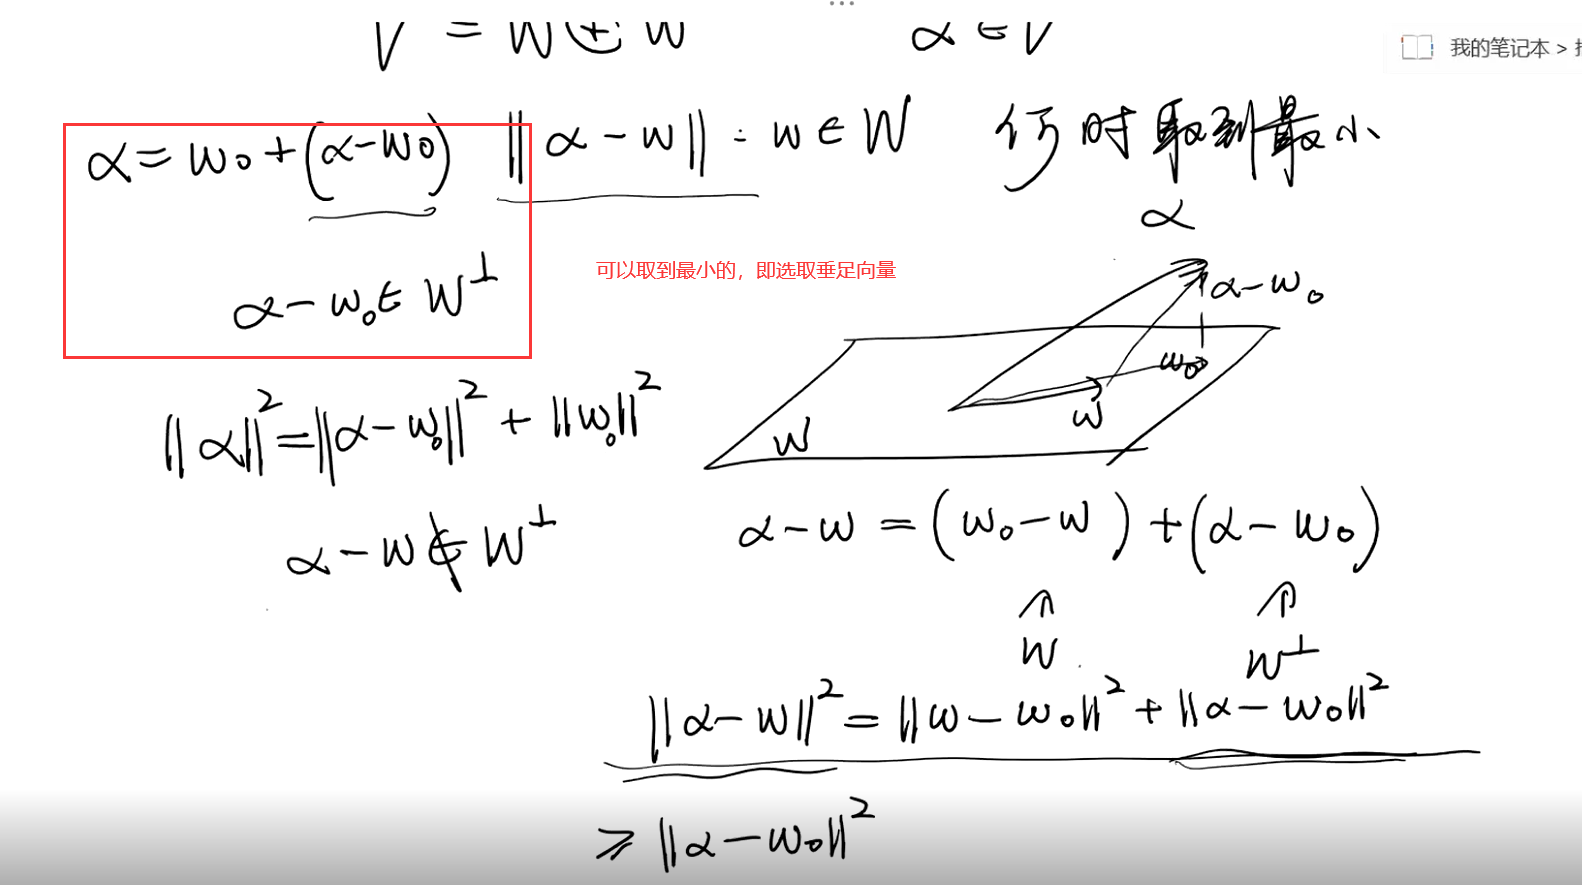 V = W ⊕ W α ∈ V
我的笔记本 >
α = w₀ + (α - w₀) ‖α - w‖ : w ∈ W 何时取到最小
α
可以取到最小的，即选取垂足向量
α - w₀ ∈ W^⊥
α - w₀
w₀
w
W
‖α‖² = ‖α - w₀‖² + ‖w₀‖²
α - w = (w₀ - w) + (α - w₀)
α - w ∉ W^⊥
W W^⊥
‖α - w‖² = ‖w - w₀‖² + ‖α - w₀‖²
≥ ‖α - w₀‖²